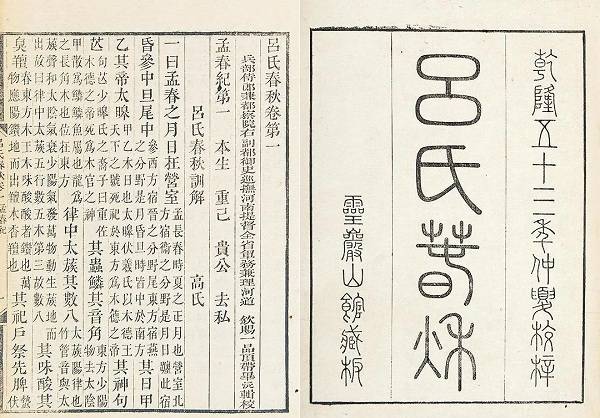 乾隆五十三年仲夏校梓
呂氏春秋
靈巖山館藏板
呂氏春秋卷第一
兵部侍郎兼都察院右副都御史巡撫河南提督全省軍務兼理河道 欽賜一品頂帶畢沅輯校
孟春紀第一 本生 重己 貴公 去私
呂氏春秋訓解 高氏
一曰孟春之月日在營室孟長春時夏之正月也營室北方宿衛之分野是月日躔此宿
昏參中旦尾中參西方宿晉之分野尾東方宿燕之分野是月昏旦時皆中於南方其日甲
乙其帝太皞甲乙木日也太皞伏羲氏以木德王天下之號死祀於東方為木德之帝其神句
芒句芒少皞氏之裔子曰重佐木德之帝死為木官之神其蟲鱗其音角東方少陽物去太陰
甲散為鱗鱗魚屬也龍為之長角木也位在東方律中太蔟其數八太蔟陽律也竹管音與太
蔟聲和太陰氣衰少陽氣發萬物動生蔟地而出故曰律中太蔟五行數五木第三故數八其味酸其
臭羶春東方木王木味酸酸者鑽也萬物應陽鑽地而出羶木香羶也其祀戶祭先脾